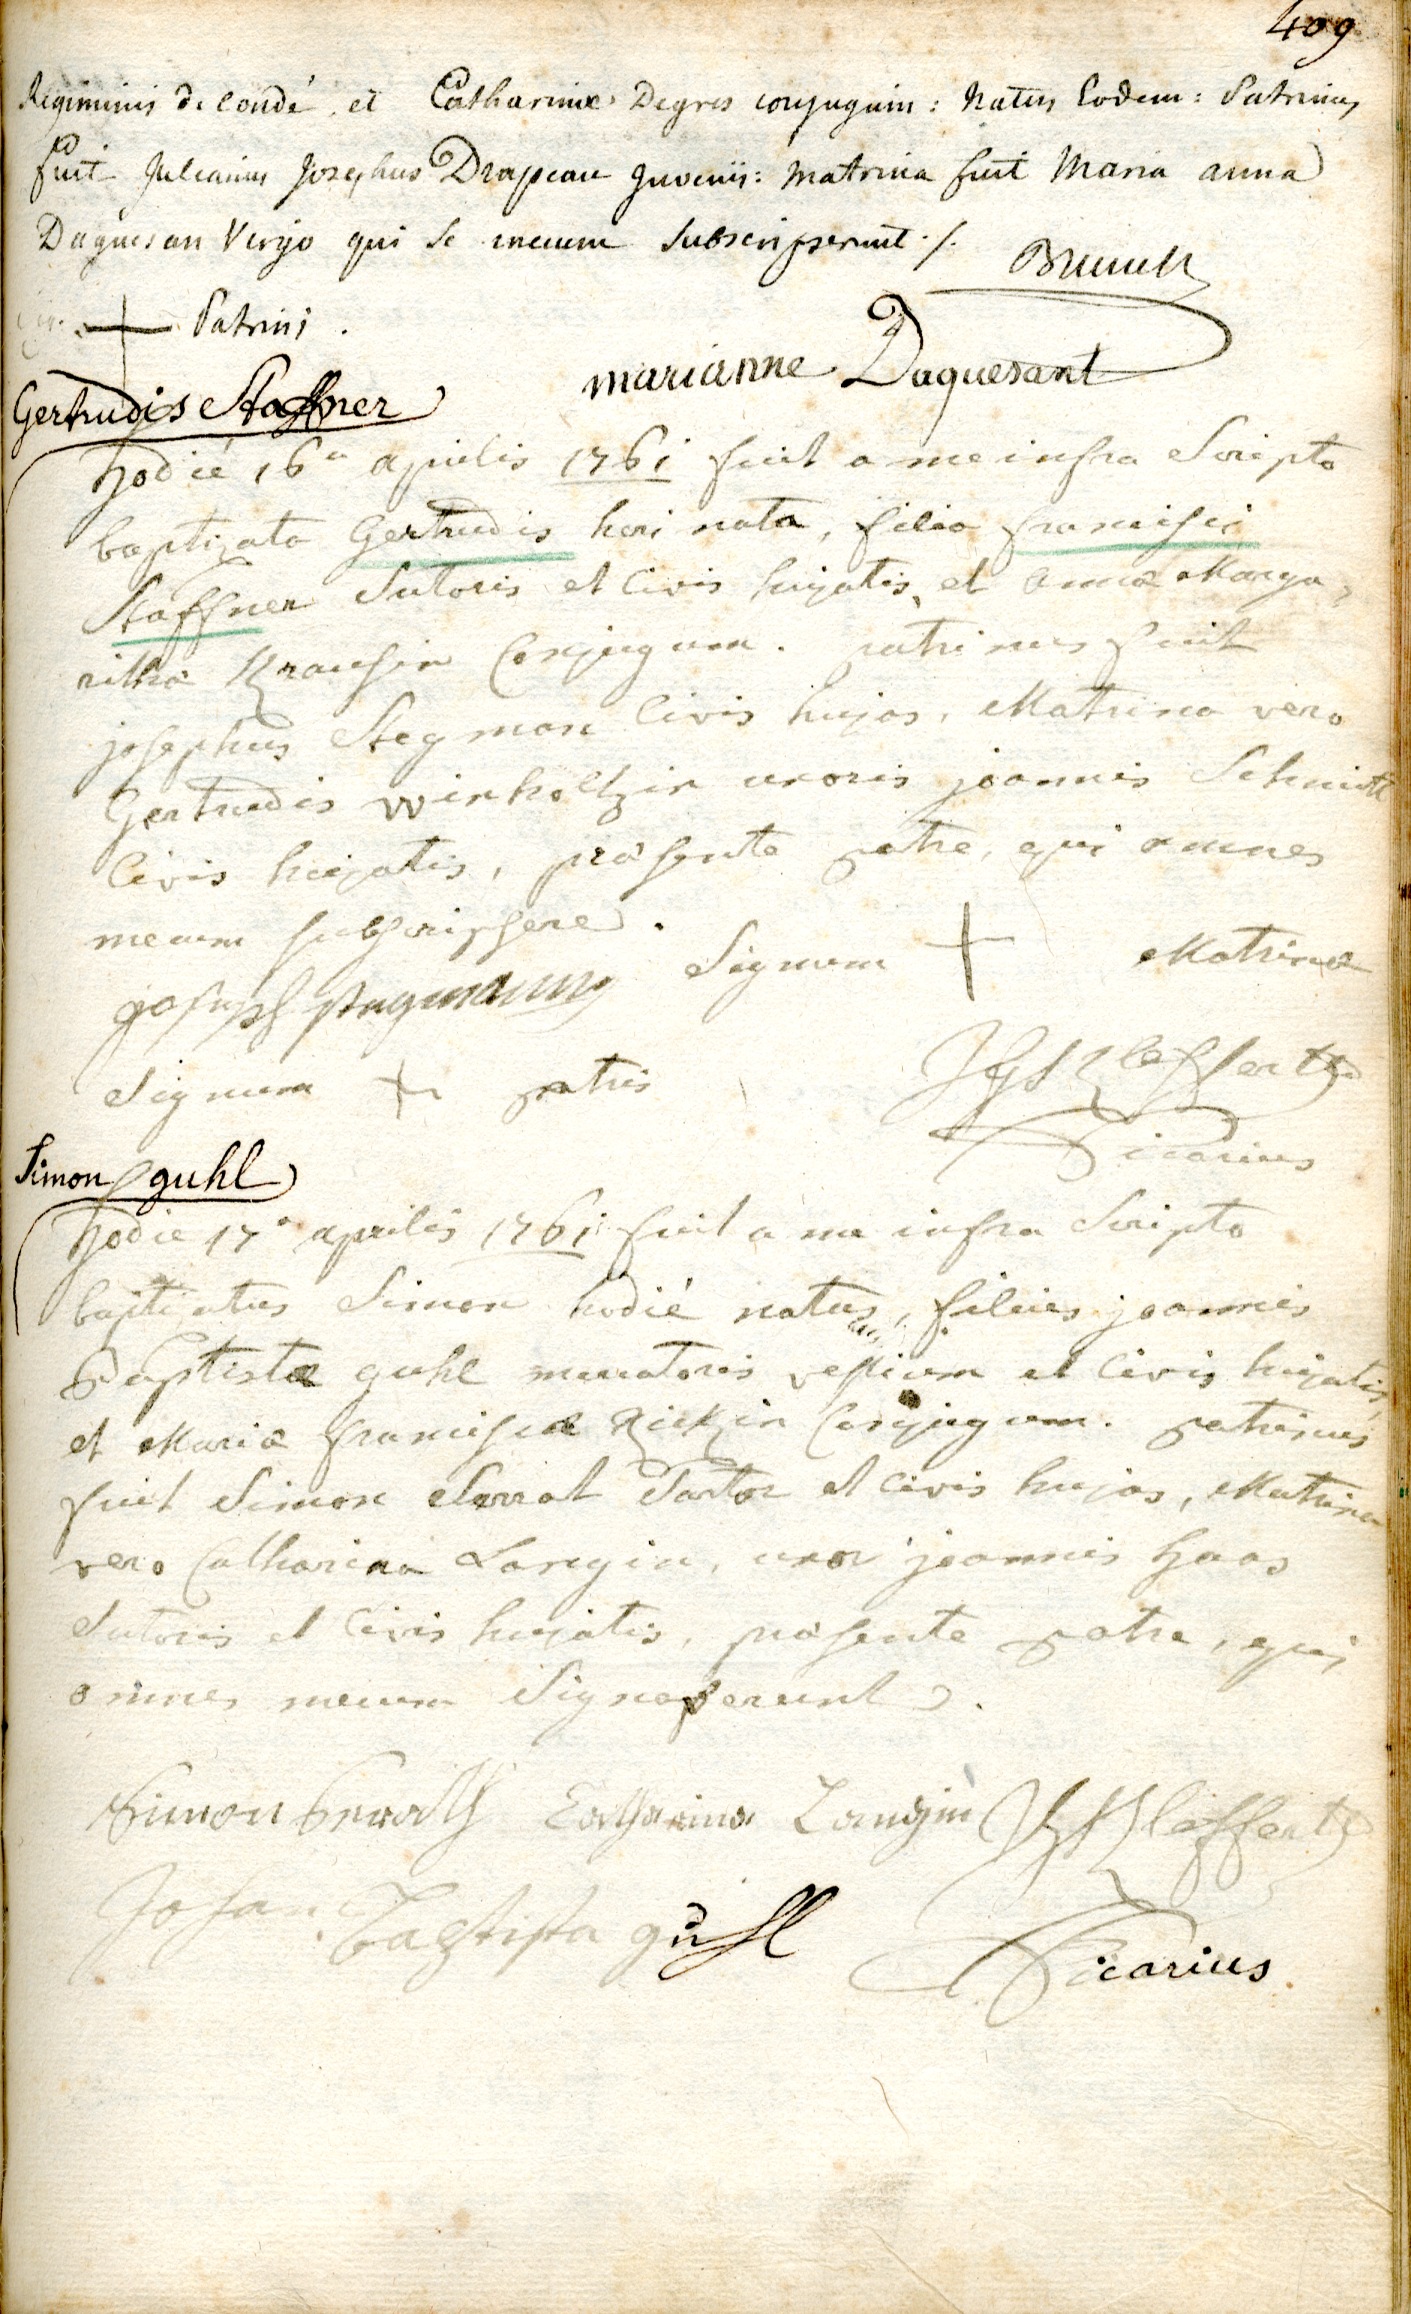 409
Regiminis de Condé et Catharinæ Degres conjugum: Natus Eodem: Patrinus
fuit Julianus Josephus Drapeau Juvenis: Matrina fuit Maria anna
Daquesan Virgo qui se mecum subscripserunt ./.
+ Patrini .
marianne Daquesant
Gertrudis Staffner
Hodié 16a aprilis 1761 fuit a me infra Scripto
baptizata Gertrudis heri nata, filia francisci
Staffner Sutoris et Civis hujatis, et annæ Marga=
rithæ Krausin Conjugum. patrinus fuit
josephus Stegman Civis hujas, Matrina vero
Gertrudis Winholtzin uxoris joannis Schmitt
Civis hujatis, præsente patre, qui omnes
mecum subscripsere.
Signum + Matrinæ
Joseph Stegmann
Signum + patris
Klefferts
Vicarius
Simon guhl
Hodie 17a aprilis 1761 fuit a me infra Scripto
baptizatus Simon hodié natus, filius joannis
Baptistæ guhl mercatoris vestium et Civis hujatis,
et Mariæ franciscæ Rickin Conjugum. patrinus
fuit Simon Serrat Sartor et Civis hujas, Matrina
vero Catharina Langin, uxor joannis Haas
Sutoris et Civis hujatis, præsente patre, qui
omnes mecum Signaverunt.
Simon Catharina Langin Klefferts
Johan Baptista guhl
Vicarius